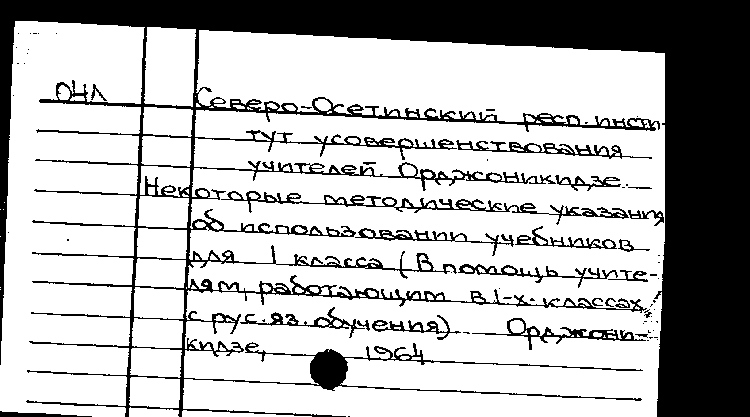 ОЧЛ
Северо-Осетинский респ. инсти-
тут усовершенствования
учителей. Орджоникидзе.
Некоторые методические указания
об использовании учебников
для 1 класса (В помощь учите-
лям, работающим в 1-х классах
с рус. яз. обучения). Орджони-
кидзе, 1964